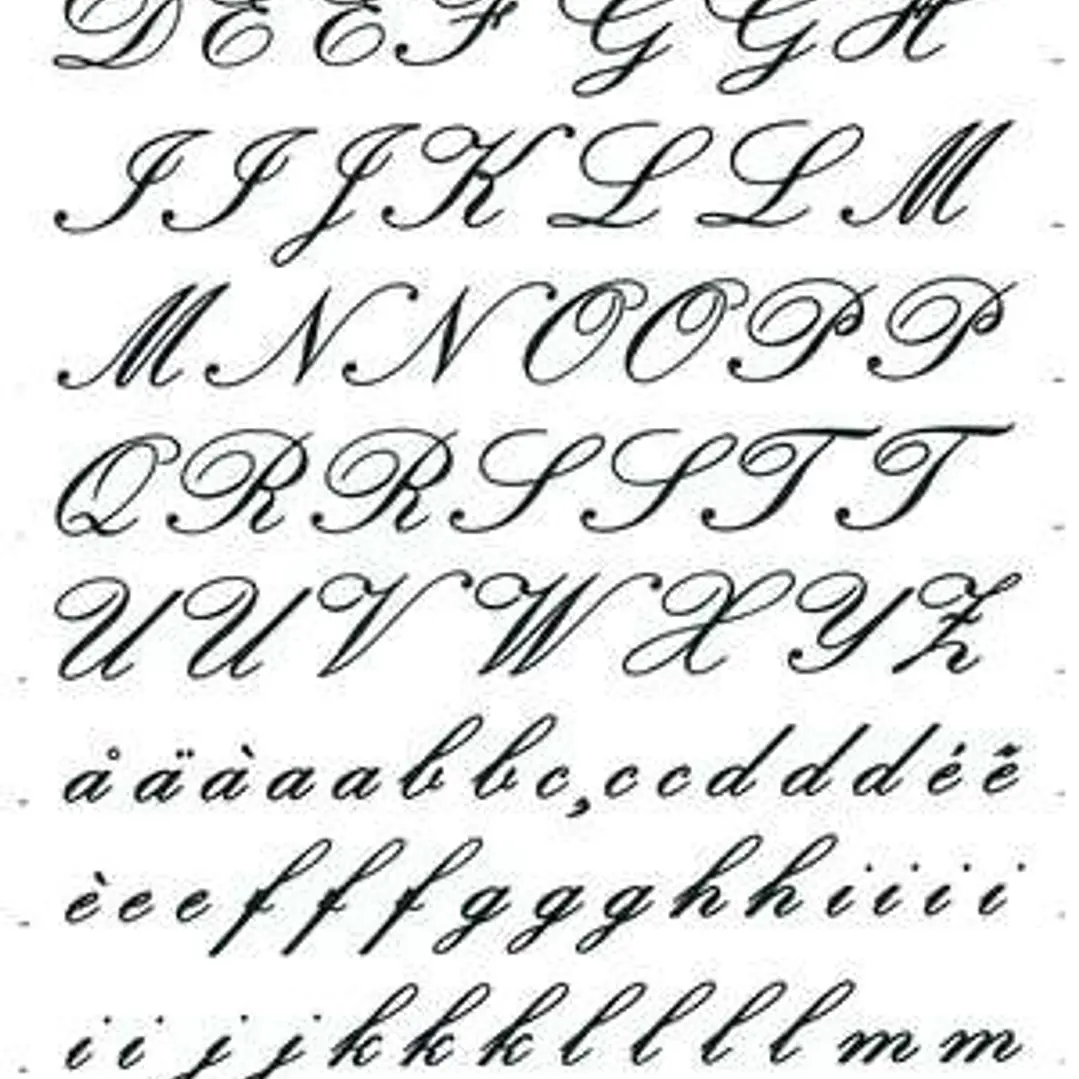 D E E F G G H
I I J K L L M
M N N O O P P
Q R R S S T T
U U V W X Y Z
å ä à a a b b c , c c d d d é ê
è e e f f f g g g h h i i i i
i i j j k k k l l l l m m